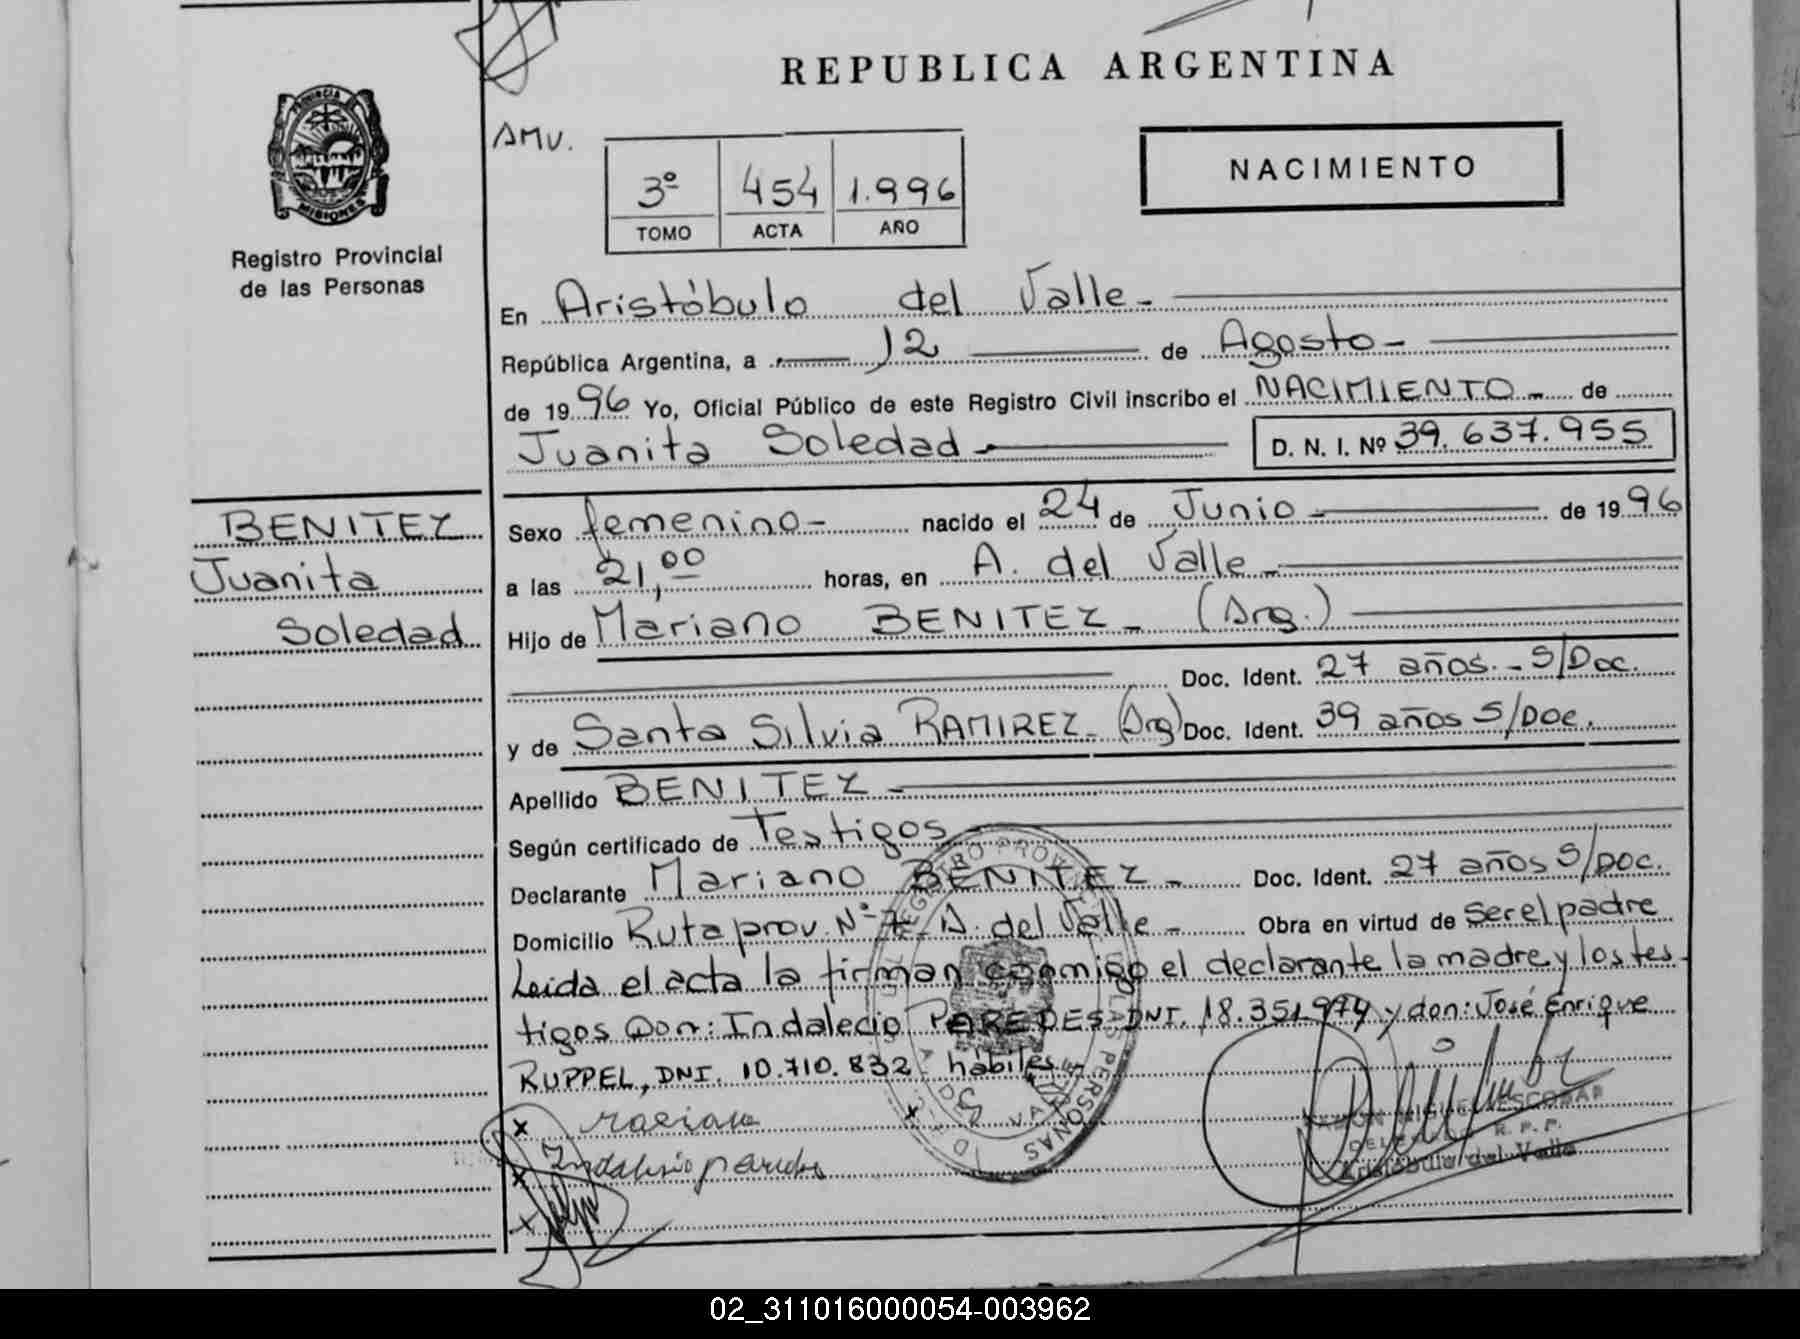 REPUBLICA ARGENTINA
PROVINCIA DE
MISIONES
Registro Provincial
de las Personas
AMV.
3º 454 1.996
TOMO ACTA AÑO
NACIMIENTO
En Aristóbulo del Valle.-
República Argentina, a 12 de Agosto-
de 1996 Yo, Oficial Público de este Registro Civil inscribo el NACIMIENTO.- de
Juanita Soledad.- D. N. I. Nº 39.637.955
BENITEZ
Juanita
Soledad
Sexo femenino- nacido el 24 de Junio- de 1996
a las 21,00 horas, en A. del Valle.-
Hijo de Mariano BENITEZ.- (Arg.)
Doc. Ident. 27 años.- S/Doc.
y de Santa Silvia RAMIREZ- (Arg) Doc. Ident. 39 años S/Doc.
Apellido BENITEZ.-
Según certificado de Testigos
Declarante Mariano BENITEZ- Doc. Ident. 27 años S/Doc.
Domicilio Ruta prov. Nº 7- A. del Valle- Obra en virtud de ser el padre
Leida el acta la firman conmigo el declarante la madre y los tes-
tigos Don: Indalecio PAREDES DNI. 18.351.974 y don: José Enrique
RUPPEL, DNI. 10.710.832 hábiles.-
x Mariano
x Indalesio paredes
x
RAMON MIGUEL ESCOBAR
DELEGADO R. P. P.
Aristóbulo del Valle
02_311016000054-003962